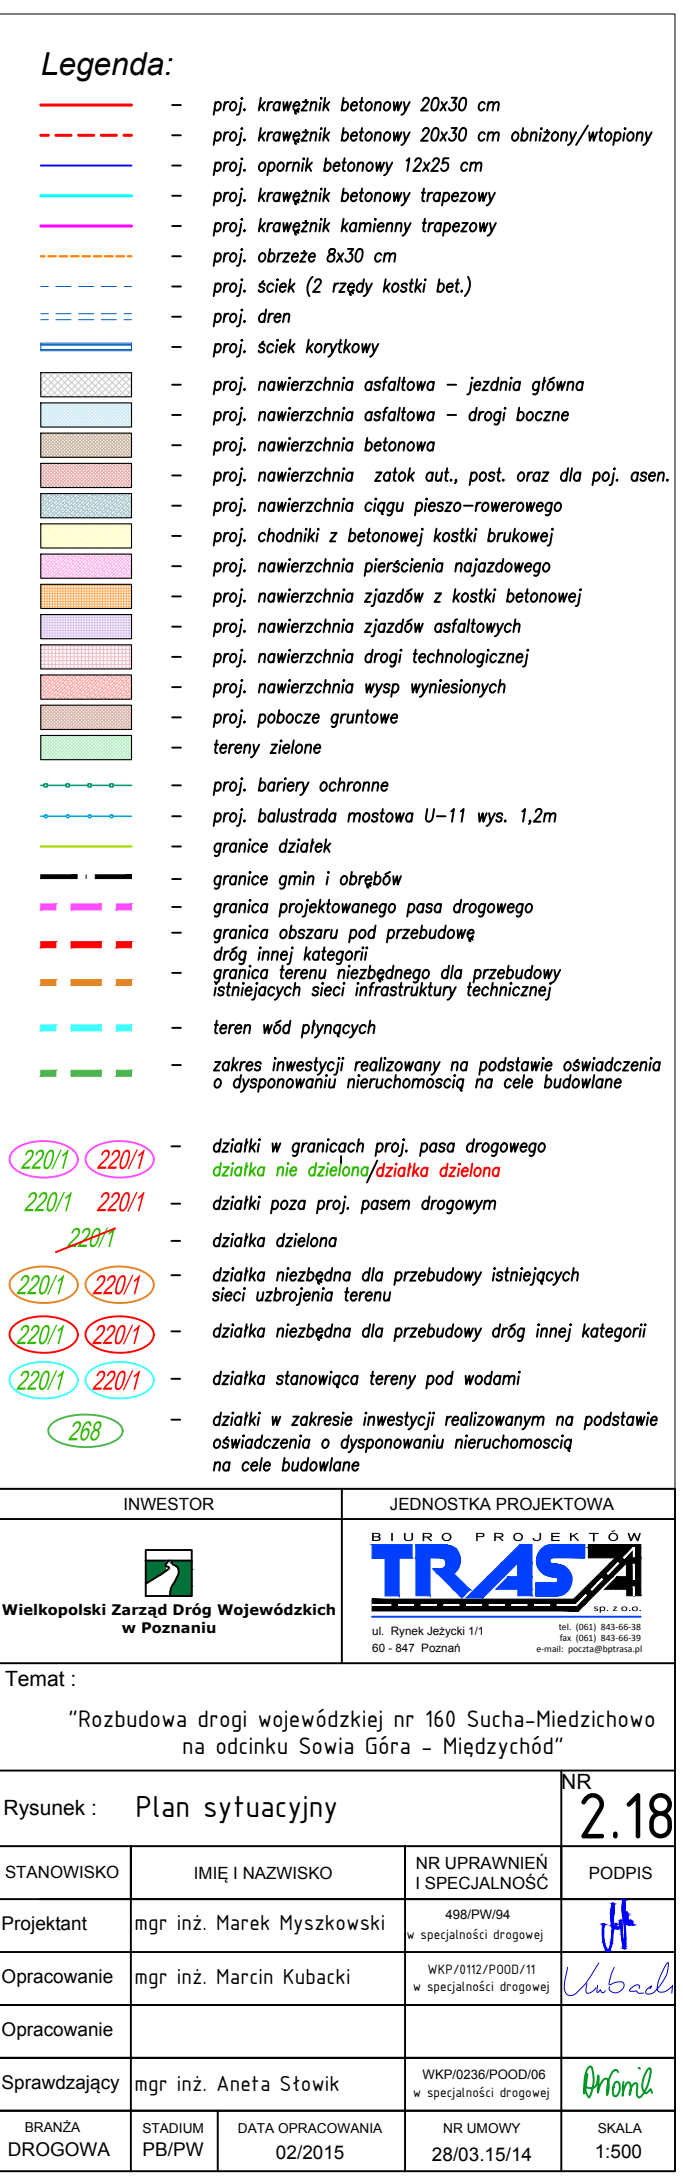 Legenda:
– proj. krawężnik betonowy 20x30 cm
– proj. krawężnik betonowy 20x30 cm obniżony/wtopiony
– proj. opornik betonowy 12x25 cm
– proj. krawężnik betonowy trapezowy
– proj. krawężnik kamienny trapezowy
– proj. obrzeże 8x30 cm
– proj. ściek (2 rzędy kostki bet.)
– proj. dren
– proj. ściek korytkowy
– proj. nawierzchnia asfaltowa – jezdnia główna
– proj. nawierzchnia asfaltowa – drogi boczne
– proj. nawierzchnia betonowa
– proj. nawierzchnia zatok aut., post. oraz dla poj. asen.
– proj. nawierzchnia ciągu pieszo–rowerowego
– proj. chodniki z betonowej kostki brukowej
– proj. nawierzchnia pierścienia najazdowego
– proj. nawierzchnia zjazdów z kostki betonowej
– proj. nawierzchnia zjazdów asfaltowych
– proj. nawierzchnia drogi technologicznej
– proj. nawierzchnia wysp wyniesionych
– proj. pobocze gruntowe
– tereny zielone
– proj. bariery ochronne
– proj. balustrada mostowa U–11 wys. 1,2m
– granice działek
– granice gmin i obrębów
– granica projektowanego pasa drogowego
– granica obszaru pod przebudowę
dróg innej kategorii
– granica terenu niezbędnego dla przebudowy
istniejacych sieci infrastruktury technicznej
– teren wód płynących
– zakres inwestycji realizowany na podstawie oświadczenia
o dysponowaniu nieruchomoscią na cele budowlane
220/1 220/1 – działki w granicach proj. pasa drogowego
działka nie dzielona/działka dzielona
220/1 220/1 – działki poza proj. pasem drogowym
220/1 – działka dzielona
220/1 220/1 – działka niezbędna dla przebudowy istniejących
sieci uzbrojenia terenu
220/1 220/1 – działka niezbędna dla przebudowy dróg innej kategorii
220/1 220/1 – działka stanowiąca tereny pod wodami
268 – działki w zakresie inwestycji realizowanym na podstawie
oświadczenia o dysponowaniu nieruchomoscią
na cele budowlane
INWESTOR
JEDNOSTKA PROJEKTOWA
Wielkopolski Zarząd Dróg Wojewódzkich
w Poznaniu
BIURO PROJEKTÓW
TRASA
sp. z o.o.
ul. Rynek Jeżycki 1/1
60 - 847 Poznań
tel. (061) 843-66-38
fax (061) 843-66-39
e-mail: poczta@bptrasa.pl
Temat :
"Rozbudowa drogi wojewódzkiej nr 160 Sucha-Miedzichowo
na odcinku Sowia Góra - Międzychód"
Rysunek : Plan sytuacyjny
NR
2.18
STANOWISKO IMIĘ I NAZWISKO NR UPRAWNIEŃ I SPECJALNOŚĆ PODPIS
Projektant mgr inż. Marek Myszkowski 498/PW/94
w specjalności drogowej
Opracowanie mgr inż. Marcin Kubacki WKP/0112/POOD/11
w specjalności drogowej
Kubacki
Opracowanie
Sprawdzający mgr inż. Aneta Słowik WKP/0236/POOD/06
w specjalności drogowej
BRANŻA STADIUM DATA OPRACOWANIA NR UMOWY SKALA
DROGOWA PB/PW 02/2015 28/03.15/14 1:500